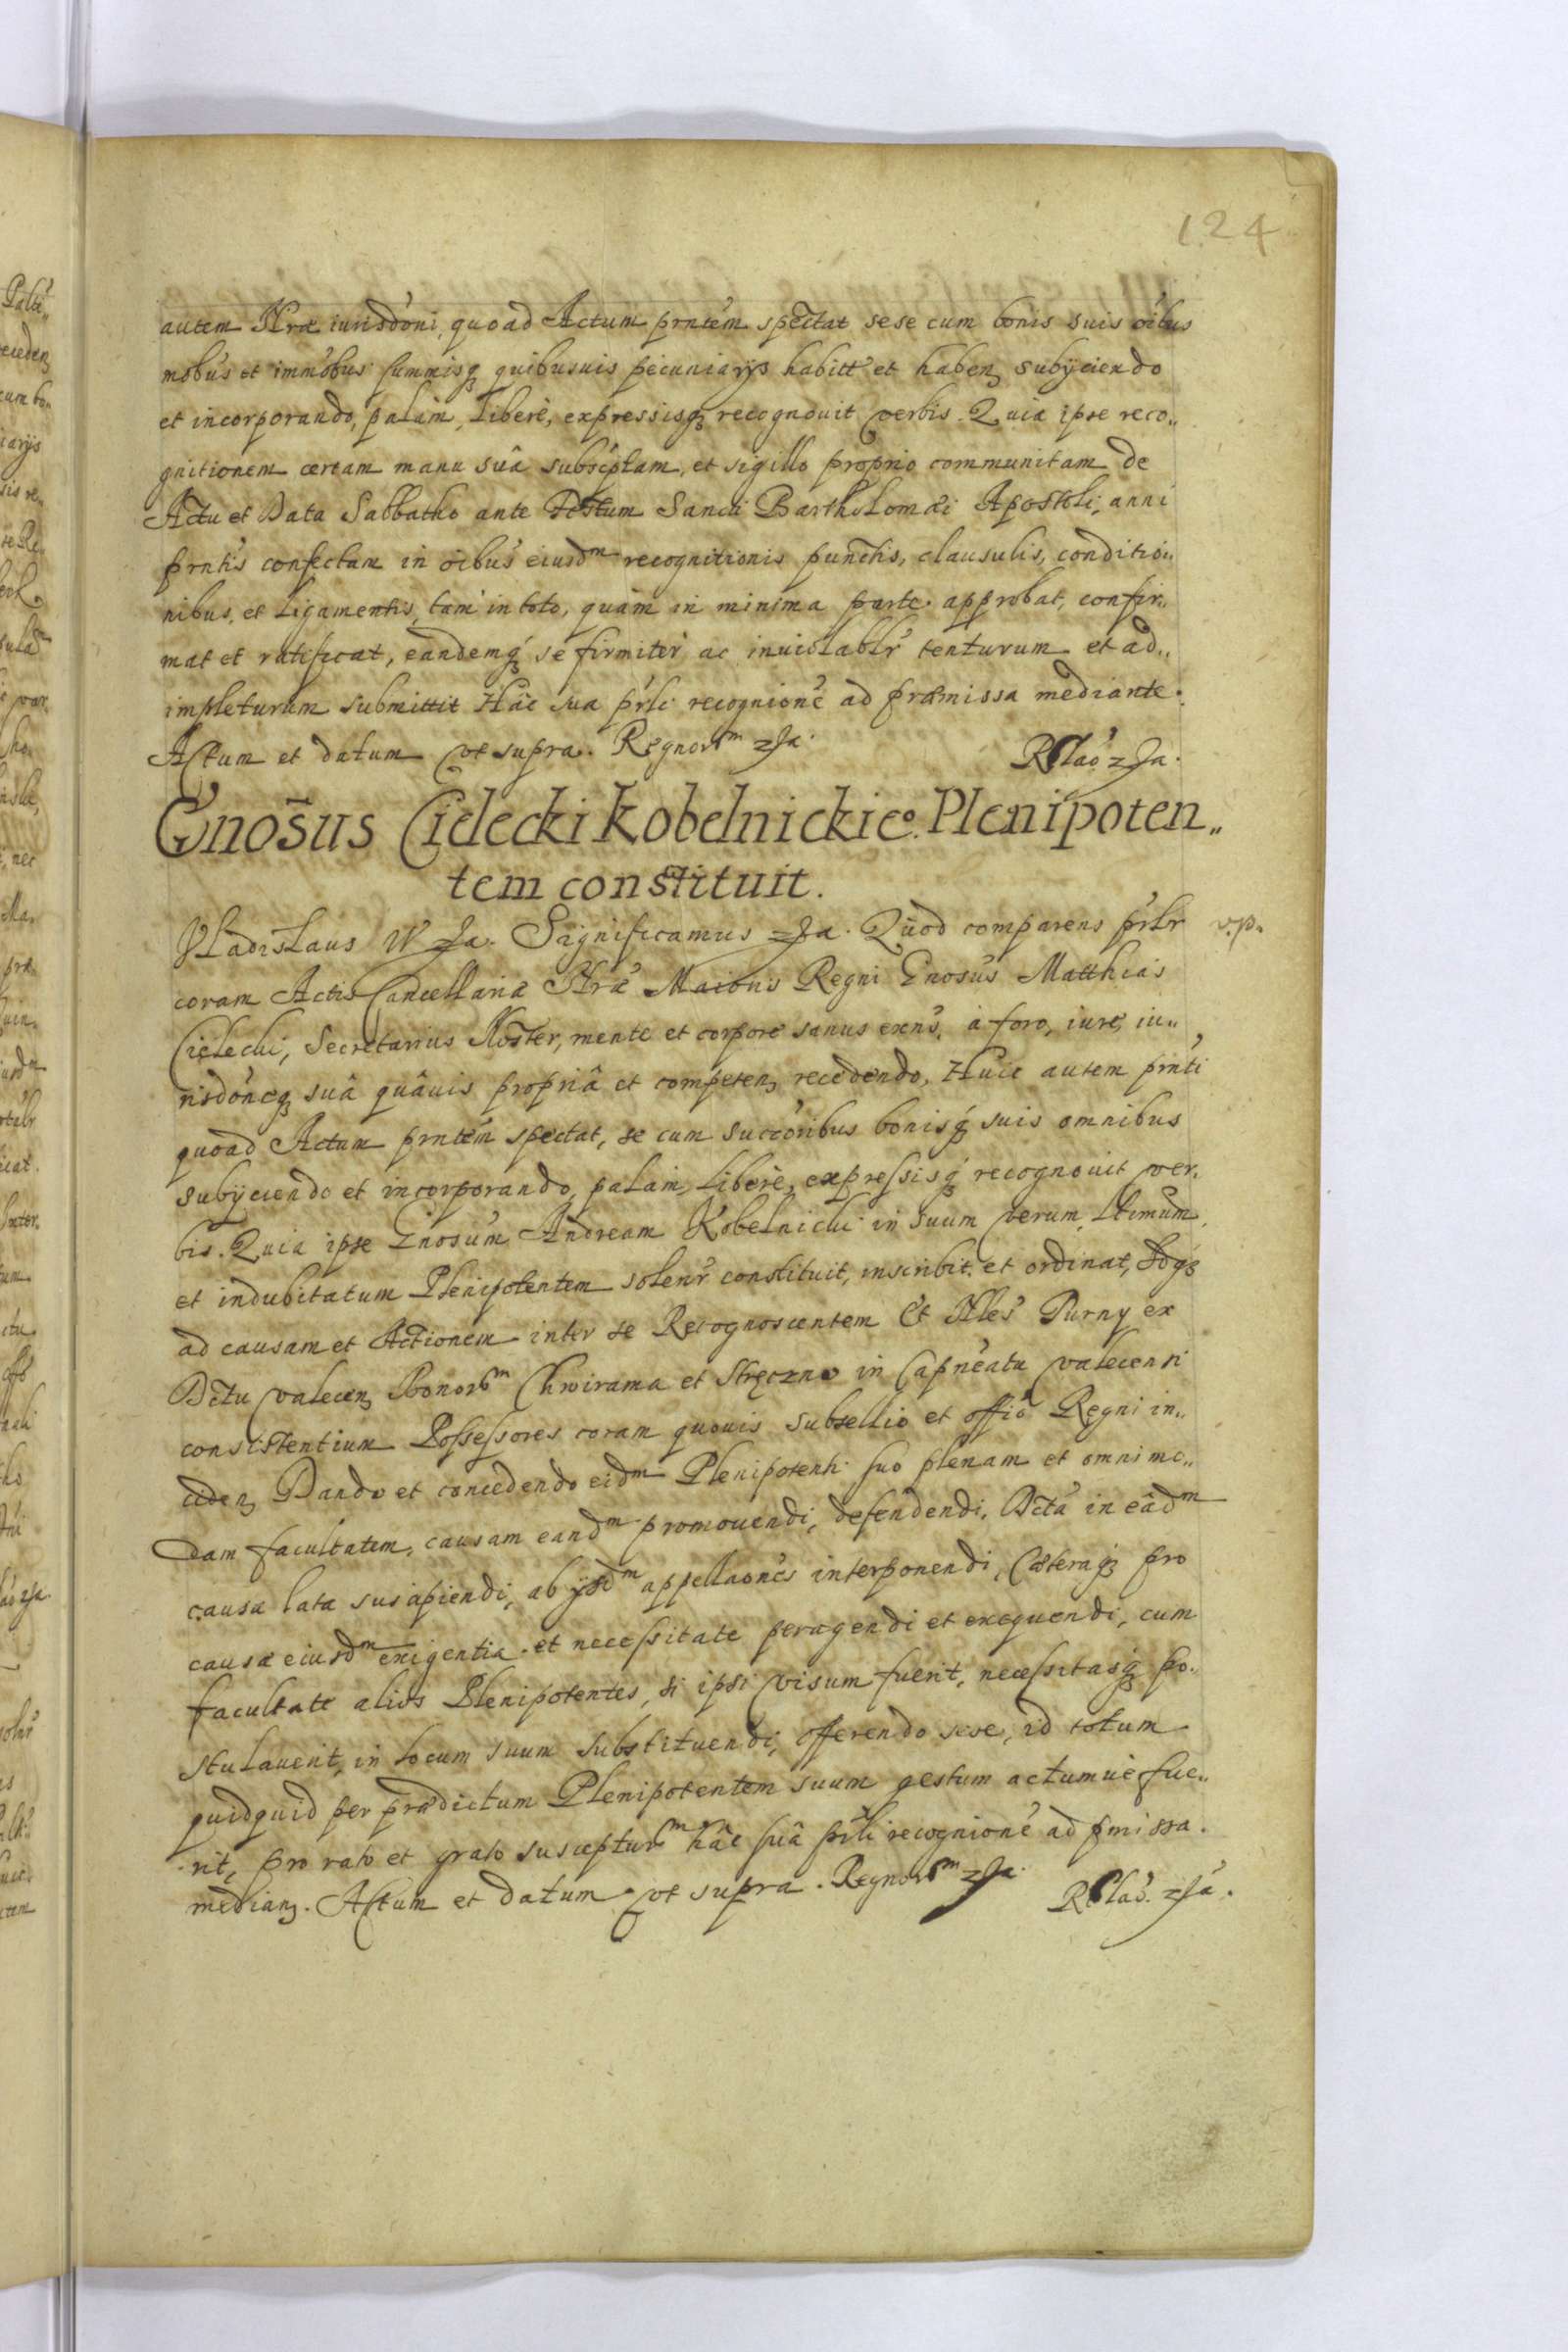 124
autem Nrae iurisdoni, quoad Actum prntem spectat sese cum bonis suis oibus
mobus et immobus summisq quibusuis pecuniarÿs habitt et haben subÿciendo
et incorporando, palàm, liberè, expressisq recognouit verbis. Quia ipse reco„
gnitionem certam manu suâ subscptam, et sigillo proprio communitam de
Actu et Data Sabbatho ante Festum Sancti Bartholomæi Apostoli, anni
prntis confectam in oibus eiusdm recognitionis punctis, clausulis, conditio„
nibus, et ligamentis, tam in toto, quàm in minima parte approbat, confir„
mat et ratificat, eandemq se firmitèr ac inuiolablr tenturum et ad„
impleturum submittit Hâc sua prli recognione ad præmissa mediante.
Actum et datum vt supra. Regnorm zJa. Relao zJa.
Gnosus Cielecki Kobelnickieo Plenipoten„
tem constituit.
Vladislaus IV zJa. Significamus zJa. Quòd comparens prlr v.p.
coram Actis Cancellariæ Nræ Maioris Regni Gnosus Matthias
Cielecki, Secretarius Noster, mente et corpore sanus exns, à foro, iure, iu„
risdoneq suâ quâuis propriâ et competen recedendo, Huic autem prnti
quoad Actum prntem spectat, se cum succoribus bonisq suis omnibus
subÿciendo et incorporando, palàm, liberè, expressisq recognouit ver„
bis. Quia ipse Gnosum Andream Kobelnicki in suum verum, ltimum,
et indubitatum Plenipotentem solenr constituit, inscribit et ordinat, idq
ad causam et Actionem inter se Recognoscentem et Nles Purny ex
Dctu valecen Bonorm Chwirama et Stręczno in Capneatu valecensi
consistentium Possessores coram quouis subsellio et offio Regni in„
ciden Dando et concedendo eidm Plenipotenti suo plenam et omnimo„
dam facultatem, causam eandm promouendi, defendendi, Dcta in eâdm
causa lata suscipiendi, ab ÿsdm appellaones interponendi, Cæteraq pro
causæ eiusdm exigentia et necessitate peragendi et exequendi, cum
facultate alios Plenipotentes, si ipsi visum fuerit, necessitasq po„
stulauerit, in locum suum substituendi, offerendo sese, id totum
quidquid per prædictum Plenipotentem suum gestum actumuè fue„
rit, pro rato et grato suscepturm hâc suâ prli recognione ad pmissa.
median. Actum et datum vt supra. Regnorm zJa. Relao. zJa.